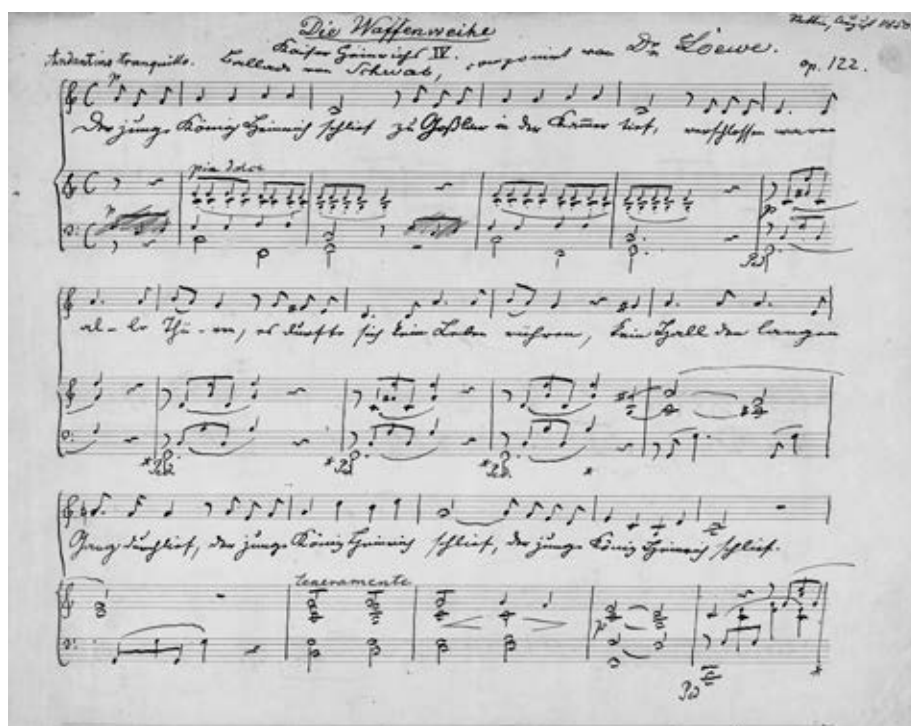 Die Waffenweihe
Stettin, August 1850
Kaiser Heinrichs IV.
Andantino tranquillo. Ballade von Schwab, componirt von Dr. Loewe.
op. 122.
p
Der junge König Heinrich schlief zu Goßlar in der Kammer tief, verschlossen waren
pia dolce
p
p
Ped
al-le Thü-ren, es durfte sich kein Leben rühren, kein Hall den langen
* Ped * Ped * Ped *
Gang durchlief, der junge König Heinrich schlief, der junge König Heinrich schlief.
teneramente
p
Ped *